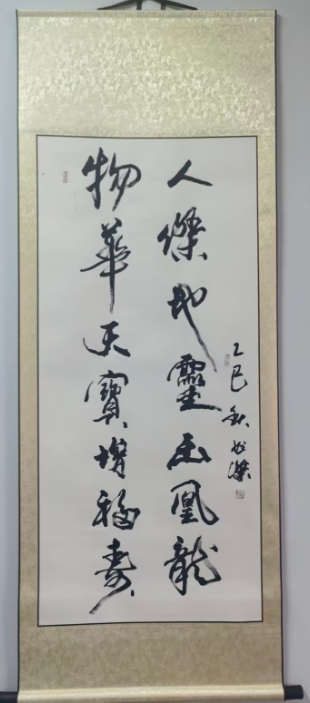 物華天寶增福壽
人傑地靈出凰龍
乙巳秋